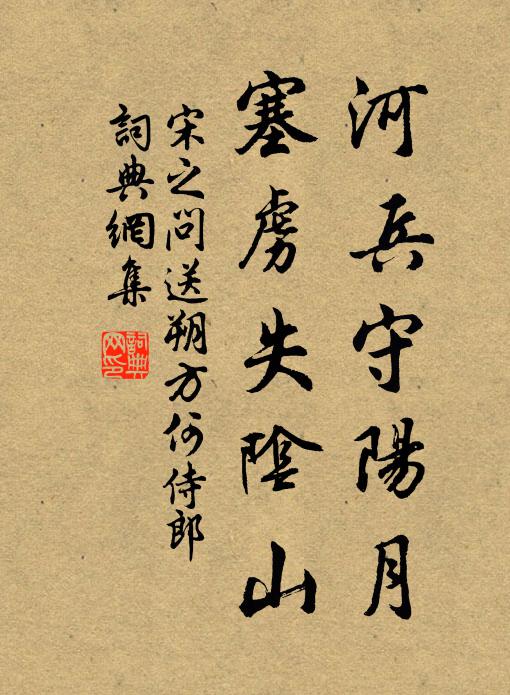 河兵守陽月
塞虜失陰山
宋之問送朔方何侍郎
詞典網集
詞典网印